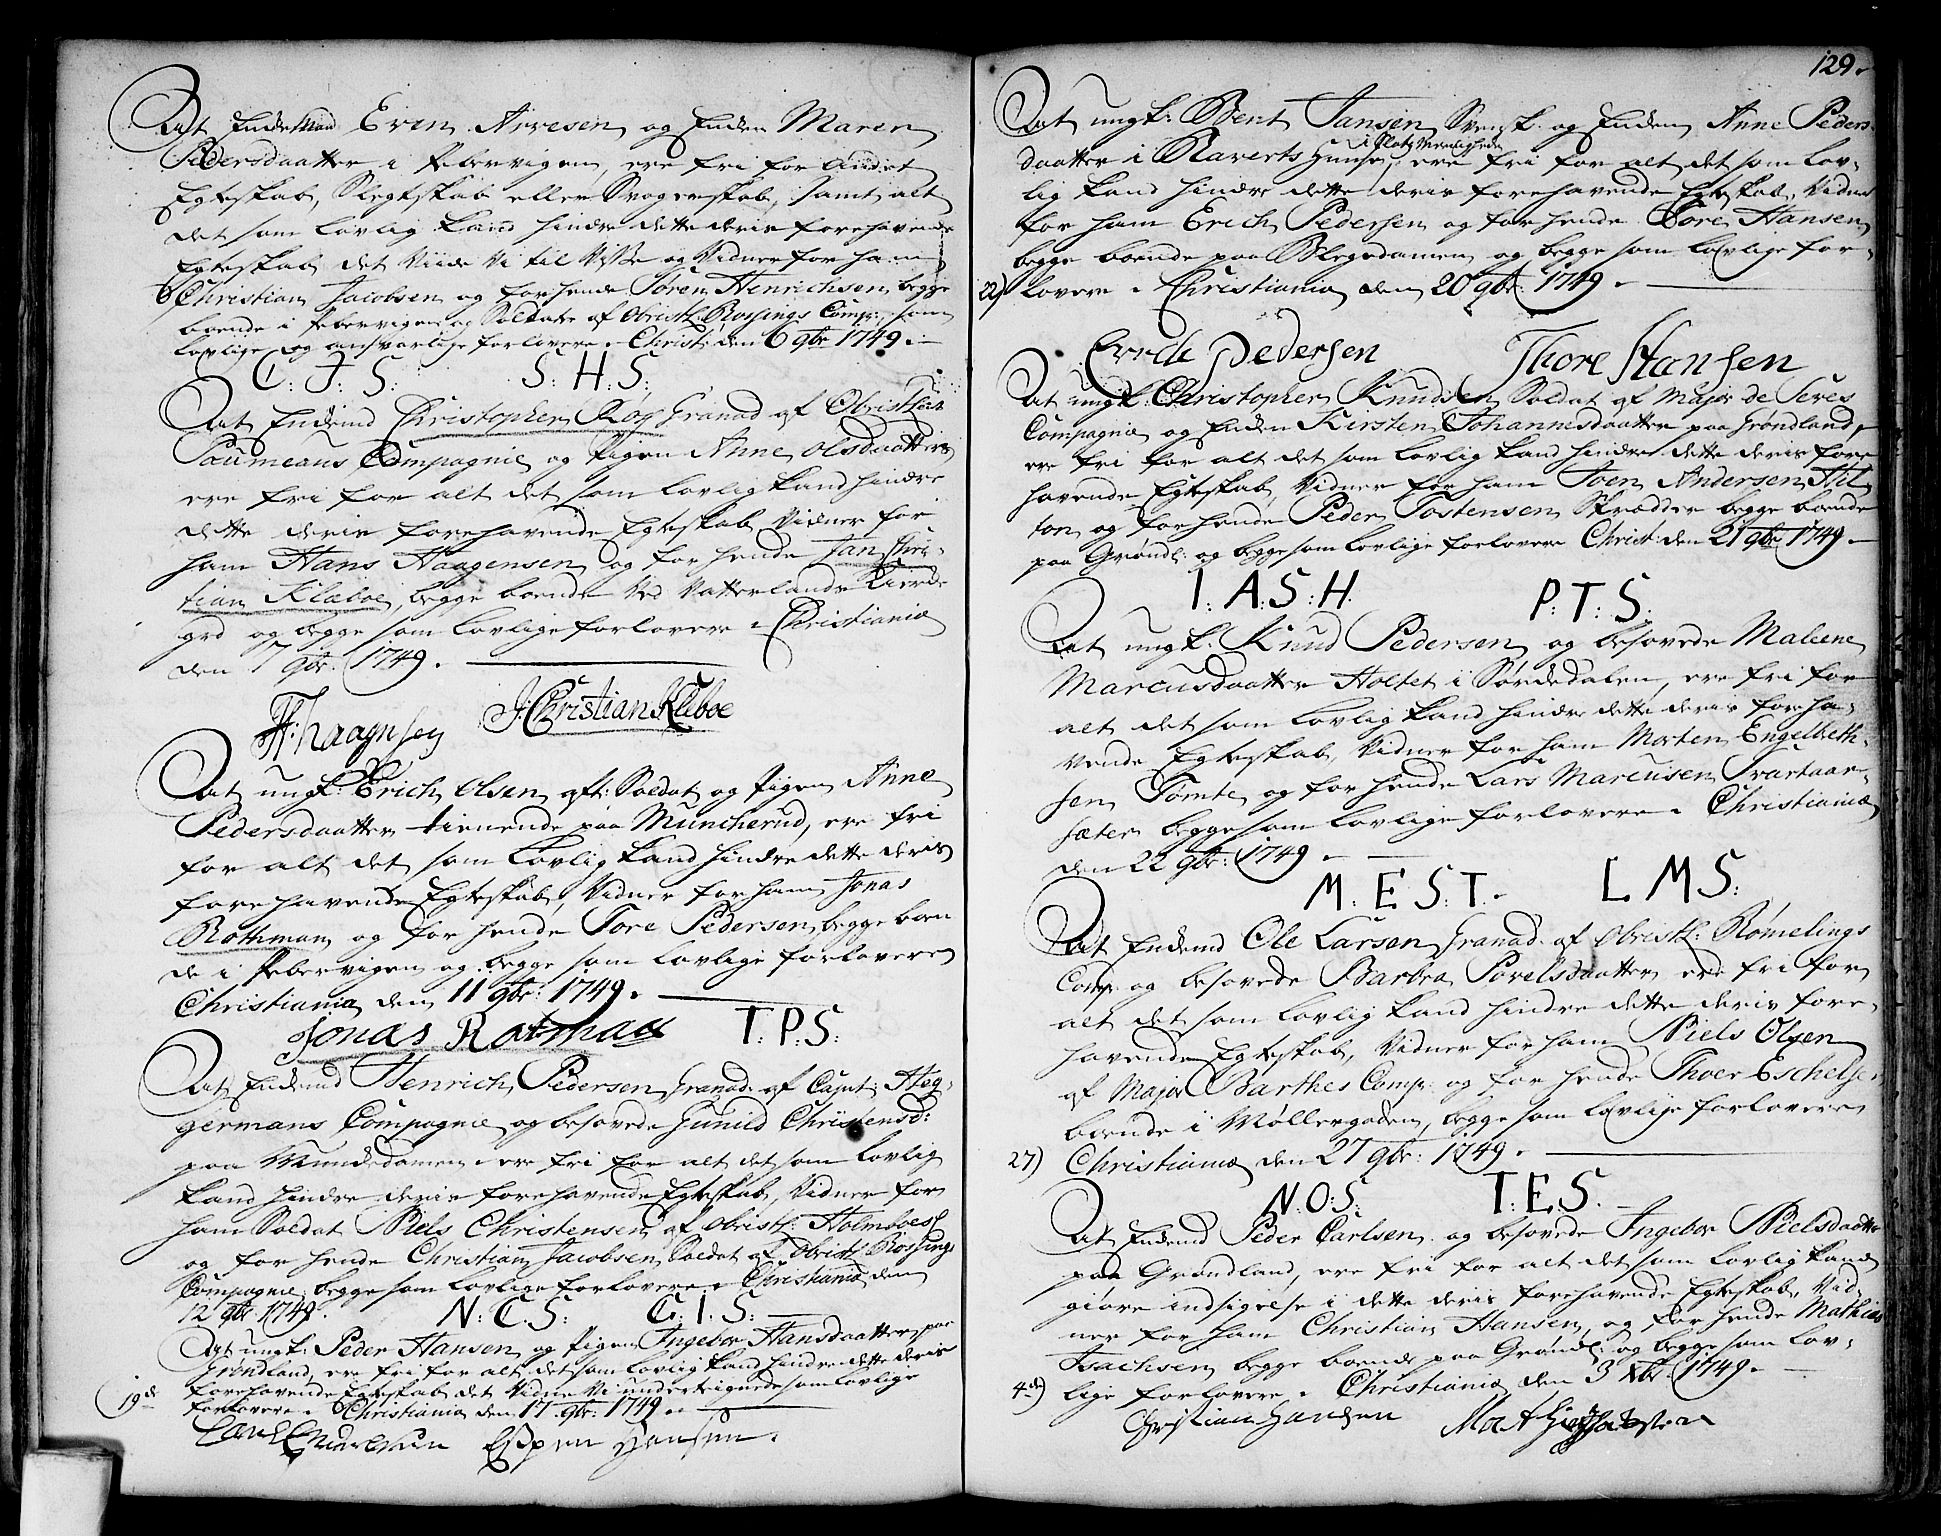 At Enckemand Even Arvesen og Encken Maren
Pedersdaatter i Pebervigen, ere fri for Andet
Egteskab, Slegtskab eller Svogerskab, samt alt
det som lovlig kand hindre dette deris forehavende
Egteskab det Viide Vi til Visse og Vidner for ham
Christian Jacobsen og for hende Sören Henrichsen begge
boende i Pebervigen og Soldater af Obristl: Rossings Comp:, som
lovlige og ansvarlige forlovere. Christ: den 6 9br 1749.
C: J: S: S: H: S:
At Enckemd Christopher Roy Granad af Obristlieut
Paumeaus Compagnie og Pigen Anne Olsdaatter
ere fri for alt det som lovlig kand hindre
dette deris forehavende Egteskab Vidner for
ham Hans Haagensen og for hende Jan Chris-
tian Klæboe, begge boende Ved Vatterlands Kierke
grd og begge som lovlige forlovere. Christiania
den 7 9br: 1749.
H: haagnsen J: Christian Klæboe
At ungk: Erich Olsen aft: Soldat og Pigen Anne
Pedersdaatter tienende paa Muncherud, ere fri
for alt det som lovlig kand hindre dette deris
forehavende Egteskab, Vidner for ham Jonas
Rothman og for hende Tore Pedersen begge boen
de i Pebervigen og begge som lovlige forlovere
Christiania den 11 9br: 1749.
Jonas Rotman T: P: S:
At Enckemd Henrich Pedersen Granad: af Capt: Heg-
germans Compagnie og besovede Gunild Christensd:
paa Mundedamen. ere fri for alt det som lovlig
kand hindre deris forehavende Egteskab, Vidner for
ham Soldat Niels Christensen af Obristl: Holmboes C
og for hende Christian Jacobsen Soldat af Obristl Rossings
Compagnie, begge som lovlige forlovere. Christiania den
12 9br 1749. N: C: S: C: I: S:
At ungk: Peder Hansen og Pigen Ingebor Hansdaatter paa
Grønland ere fri for alt det som lovlig kand hindre dette deris
19de forehavende Egteskab det Vidner Vi undertegnede som lovlige
forlovere. Christiania den 17. 9br: 1749.
Espen Hansen.
129.
At ungk: Bent Jansen Svensk. og Encken Anne Peders-
daatter i Raverts Huuse, ere fri for alt det som lov-
lig kand hindre dette deris forehavende Egteskab, Vidner
for ham Erich Pedersen og for hende Tore Hansen
begge boende paa Blegedamen og begge som lovlige for-
22) lovere. Christiania den 20 9br: 1749.
Errik Pedersen Thore Hansen
At ungk: Christopher Knudsen Soldat af Major de Seves
Compagnie og Encken Kirsten Johannisdaatter paa Grøndland,
ere fri for alt det som lovlig kand hindre dette deris fore
havende Egteskab, Vidner for ham Joen Andersen Hil
ton og for hende Peder Tostensen Skrædder begge boende
paa Grøndl: og begge som lovlige forlovere Christ: den 21 9br 1749.
I: A: S: H. P: T: S:
At ungk: Knud Pedersen og besovede Malene
Marcusdaatter Holtet i Sørckedalen, ere fri for
alt det som lovlig kand hindre dette deris foreha-
vende Egteskab, Vidner for ham Morten Engelbreth-
sen Tømte, og for hende Lars Marcusen Svartaar-
sæter begge som lovlige forlovere. Christiania
den 22 9br: 1749.
M: E: S: T. L M S:
At Enckemd Ole Larsen Granad: af Obristl: Rømelings
Comp: og besovede Barbra Povelsdaatter ere fri for
alt det som lovlig kand hindre dette deris fore-
havende Egteskab, Vidner for ham Niels Olsen
af Major Barthes Comp: og for hende Thoer Eschelsen
boende i Møllergaden, begge som lovlige forlovere
27) Christiania den 27 9br: 1749.
N: O: S: T: E: S.
At Enckemd Peder Carlsen og besovede Ingebor Nielsdaatter
paa Grøndland, ere fri for alt det som lovlig kand
giøre indsigelse i dette deris forehavende Egteskab, Vid-
ner for ham Christian Hansen, og for hende Mathias
Isachsen begge boende paa Grøndl: og begge som lov-
4de) lige forlovere. Christiania den 3 Xbr: 1749.
Christian Hansen